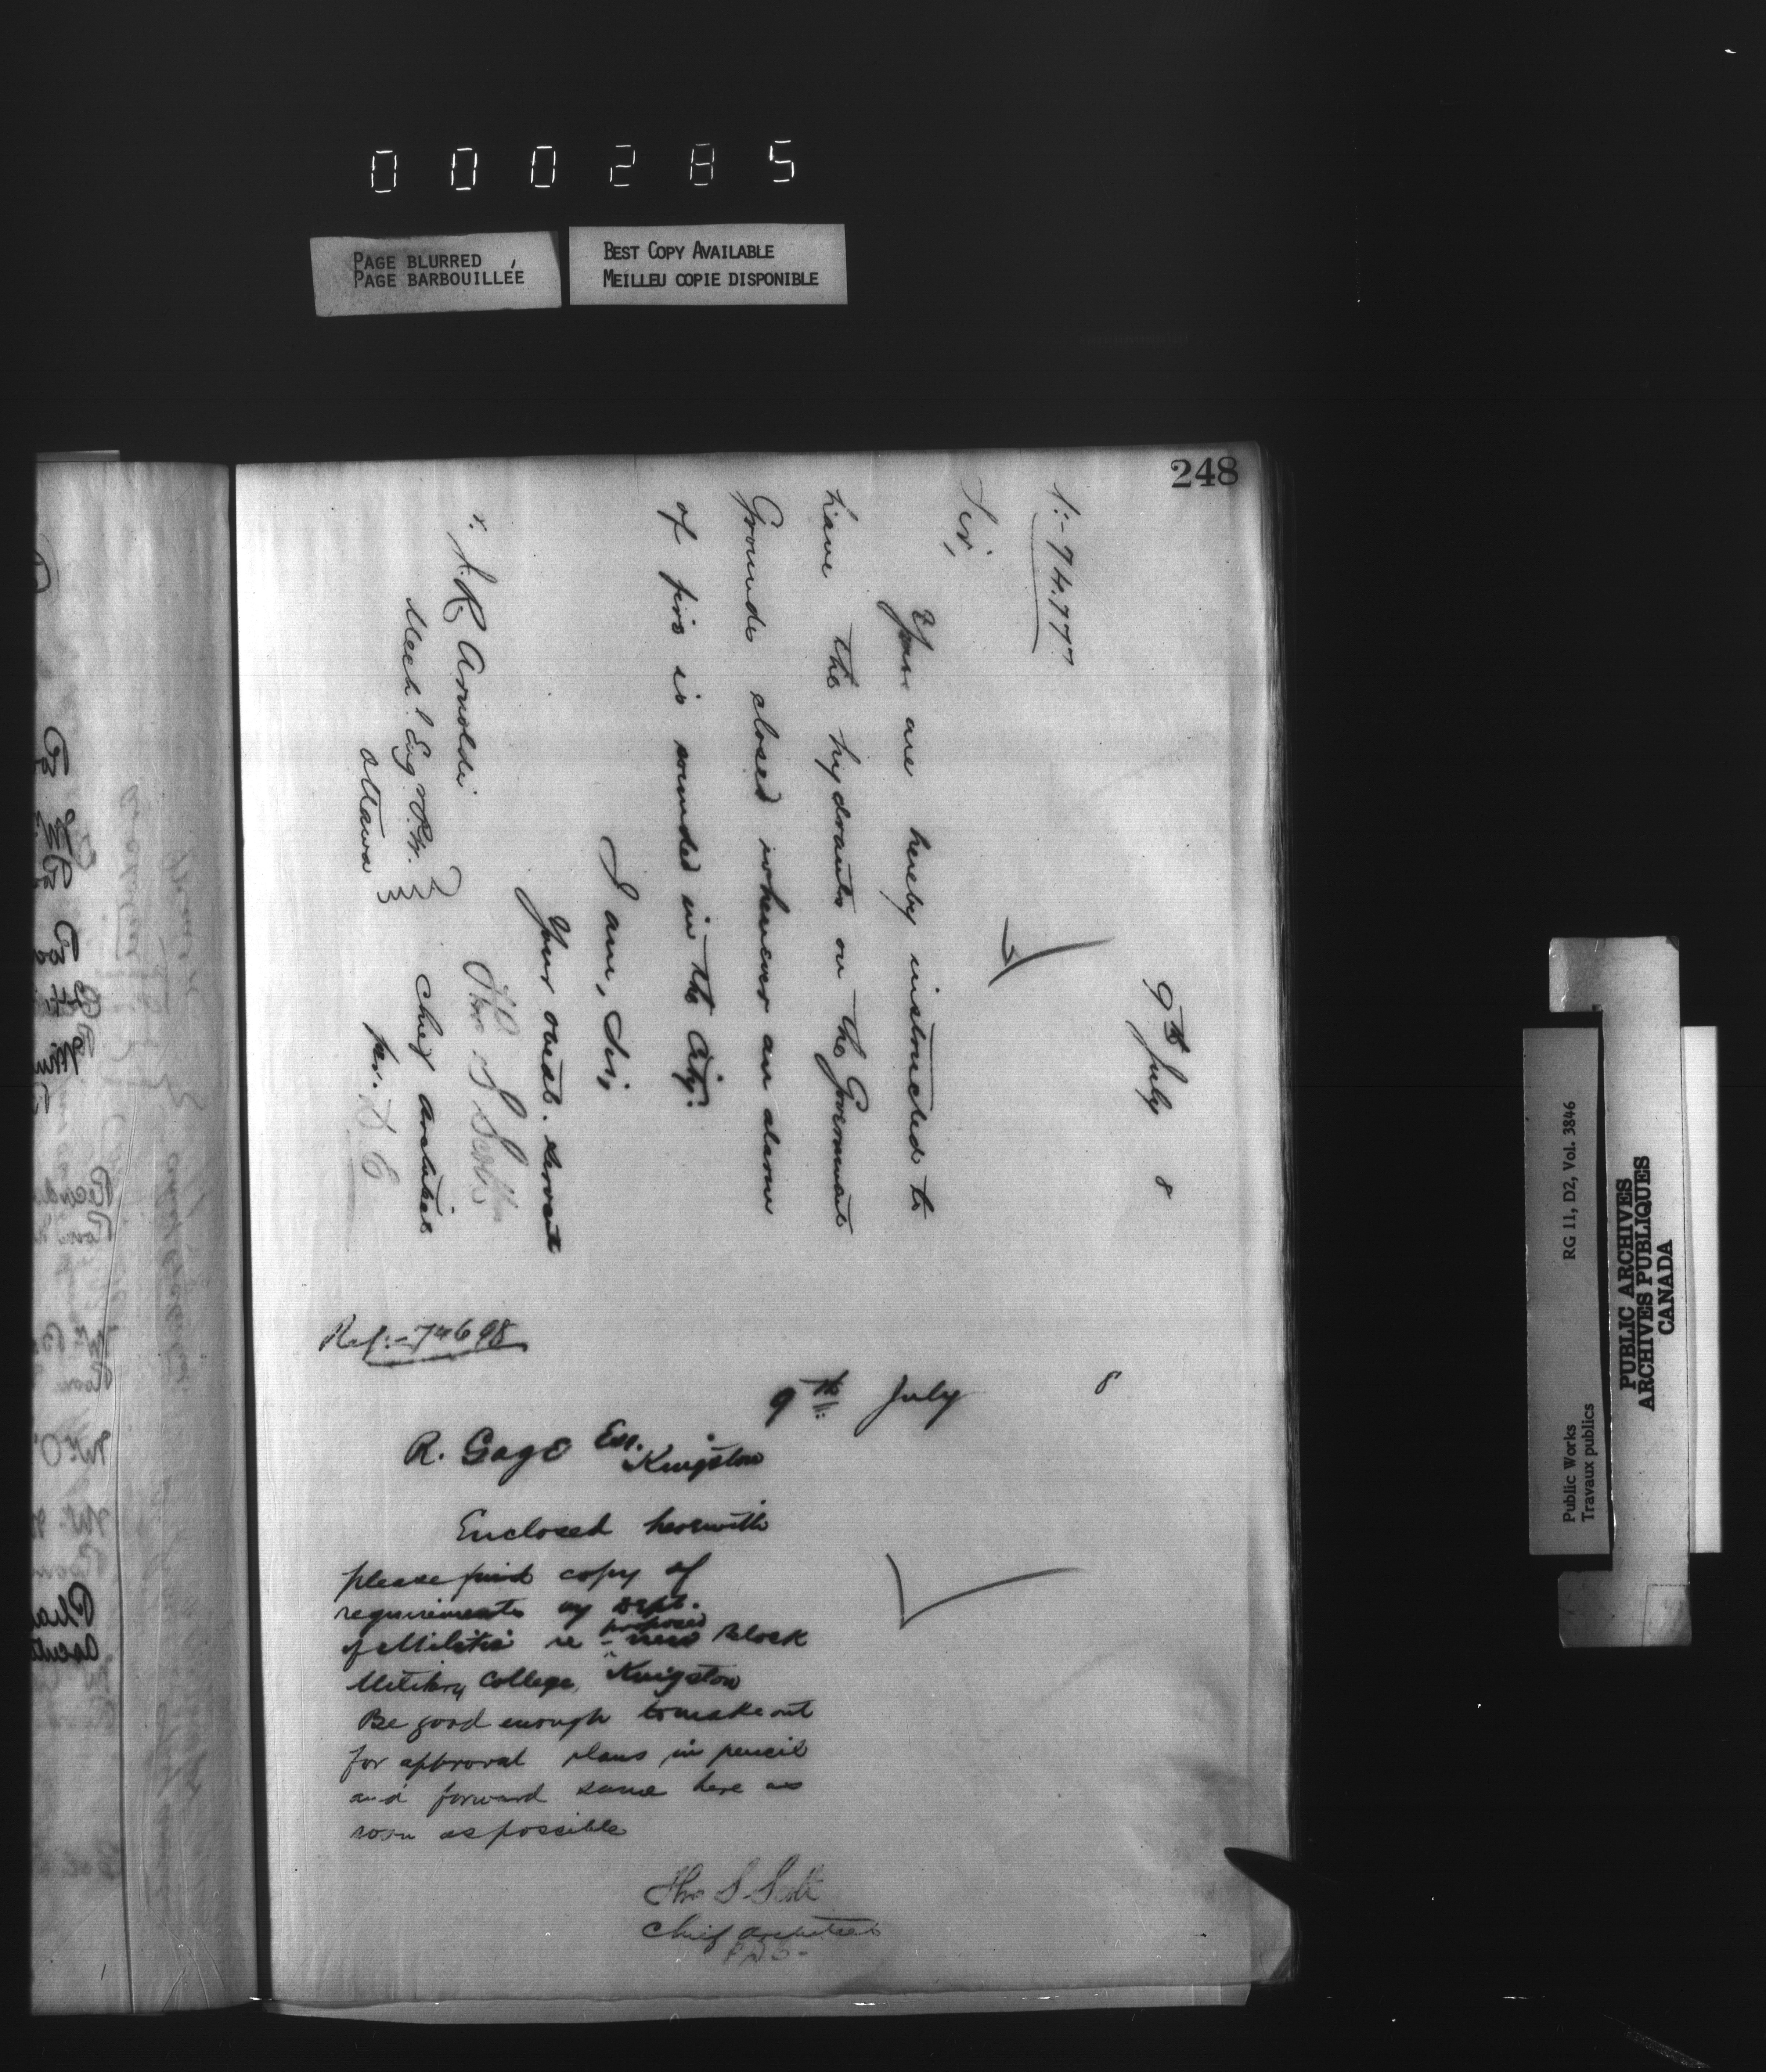 000285
PAGE BLURRED
PAGE BARBOUILLÉE
BEST COPY AVAILABLE
MEILLEU COPIE DISPONIBLE
248
9th July 8
:-74777
Sir,
You are hereby instructed to
have the hydrants on the Government
Grounds closed whenever an alarm
of fire is sounded in the City.
I am, Sir,
Your obedt. servant
Thos S Scott
Chief Architect
per. D E
J. R Arnoldi
Mechl. Eng. P.W.
Ottawa
Ref:-74698
9th July 8
R. Gage Esq.
Kingston
Enclosed herewith
please find copy of
requirements by Dept.
of Militia re proposed new Block
Military College, Kingston
Be good enough to make out
for approval plans in pencil
and forward same here as
soon as possible
Thos S Scott
Chief Architect
Public Works
Travaux publics
RG 11, D2, Vol. 3846
PUBLIC ARCHIVES
ARCHIVES PUBLIQUES
CANADA